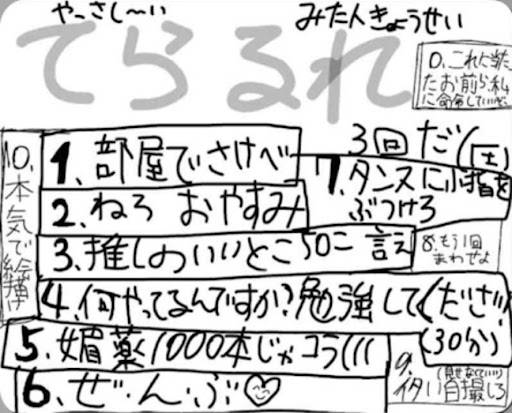 やっさし〜い
みた人きょうせい
てらるれ
0.これに当たっ
たお前ら、私
に命令していいぞ
3回だ(圧)
1.部屋でさけべ
7.タンスに小指を
ぶつけろ
2.ねろ おやすみ
3.推しのいいとこ50こ 言え
8.もう1回
まわせよ
4.何やってるんですか?勉強してください
(30分)
5.媚薬1000本じゃコラ(((
6.ぜ・ん・ぶ♡
9.(見せなくていい)
イタい自撮しろ
10.本気で絵描け